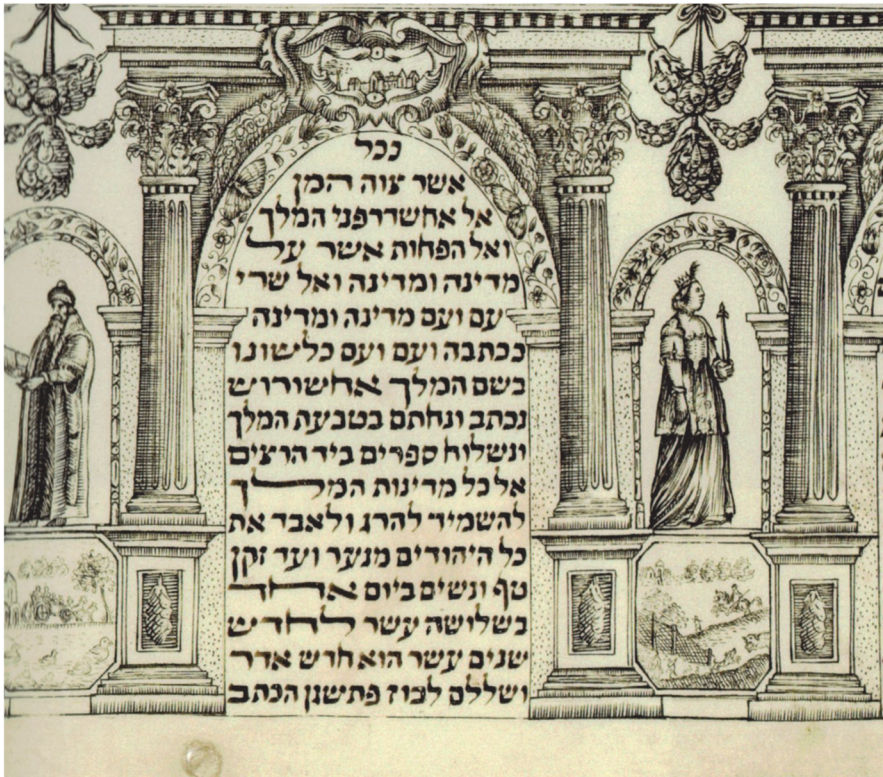 ככל
אשר צוה המן
אל אחשדרפני המלך
ואל הפחות אשר על
מדינה ומדינה ואל שרי
עם ועם מדינה ומדינה
ככתבה ועם ועם כלשונו
בשם המלך אחשורוש
נכתב ונחתם בטבעת המלך
ונשלוח ספרים ביד הרצים
אל כל מדינות המלך
להשמיד להרג ולאבד את
כל היהודים מנער ועד זקן
טף ונשים ביום אחד
בשלושה עשר לחדש
שנים עשר הוא חדש אדר
ושללם לבוז פתשגן הכתב